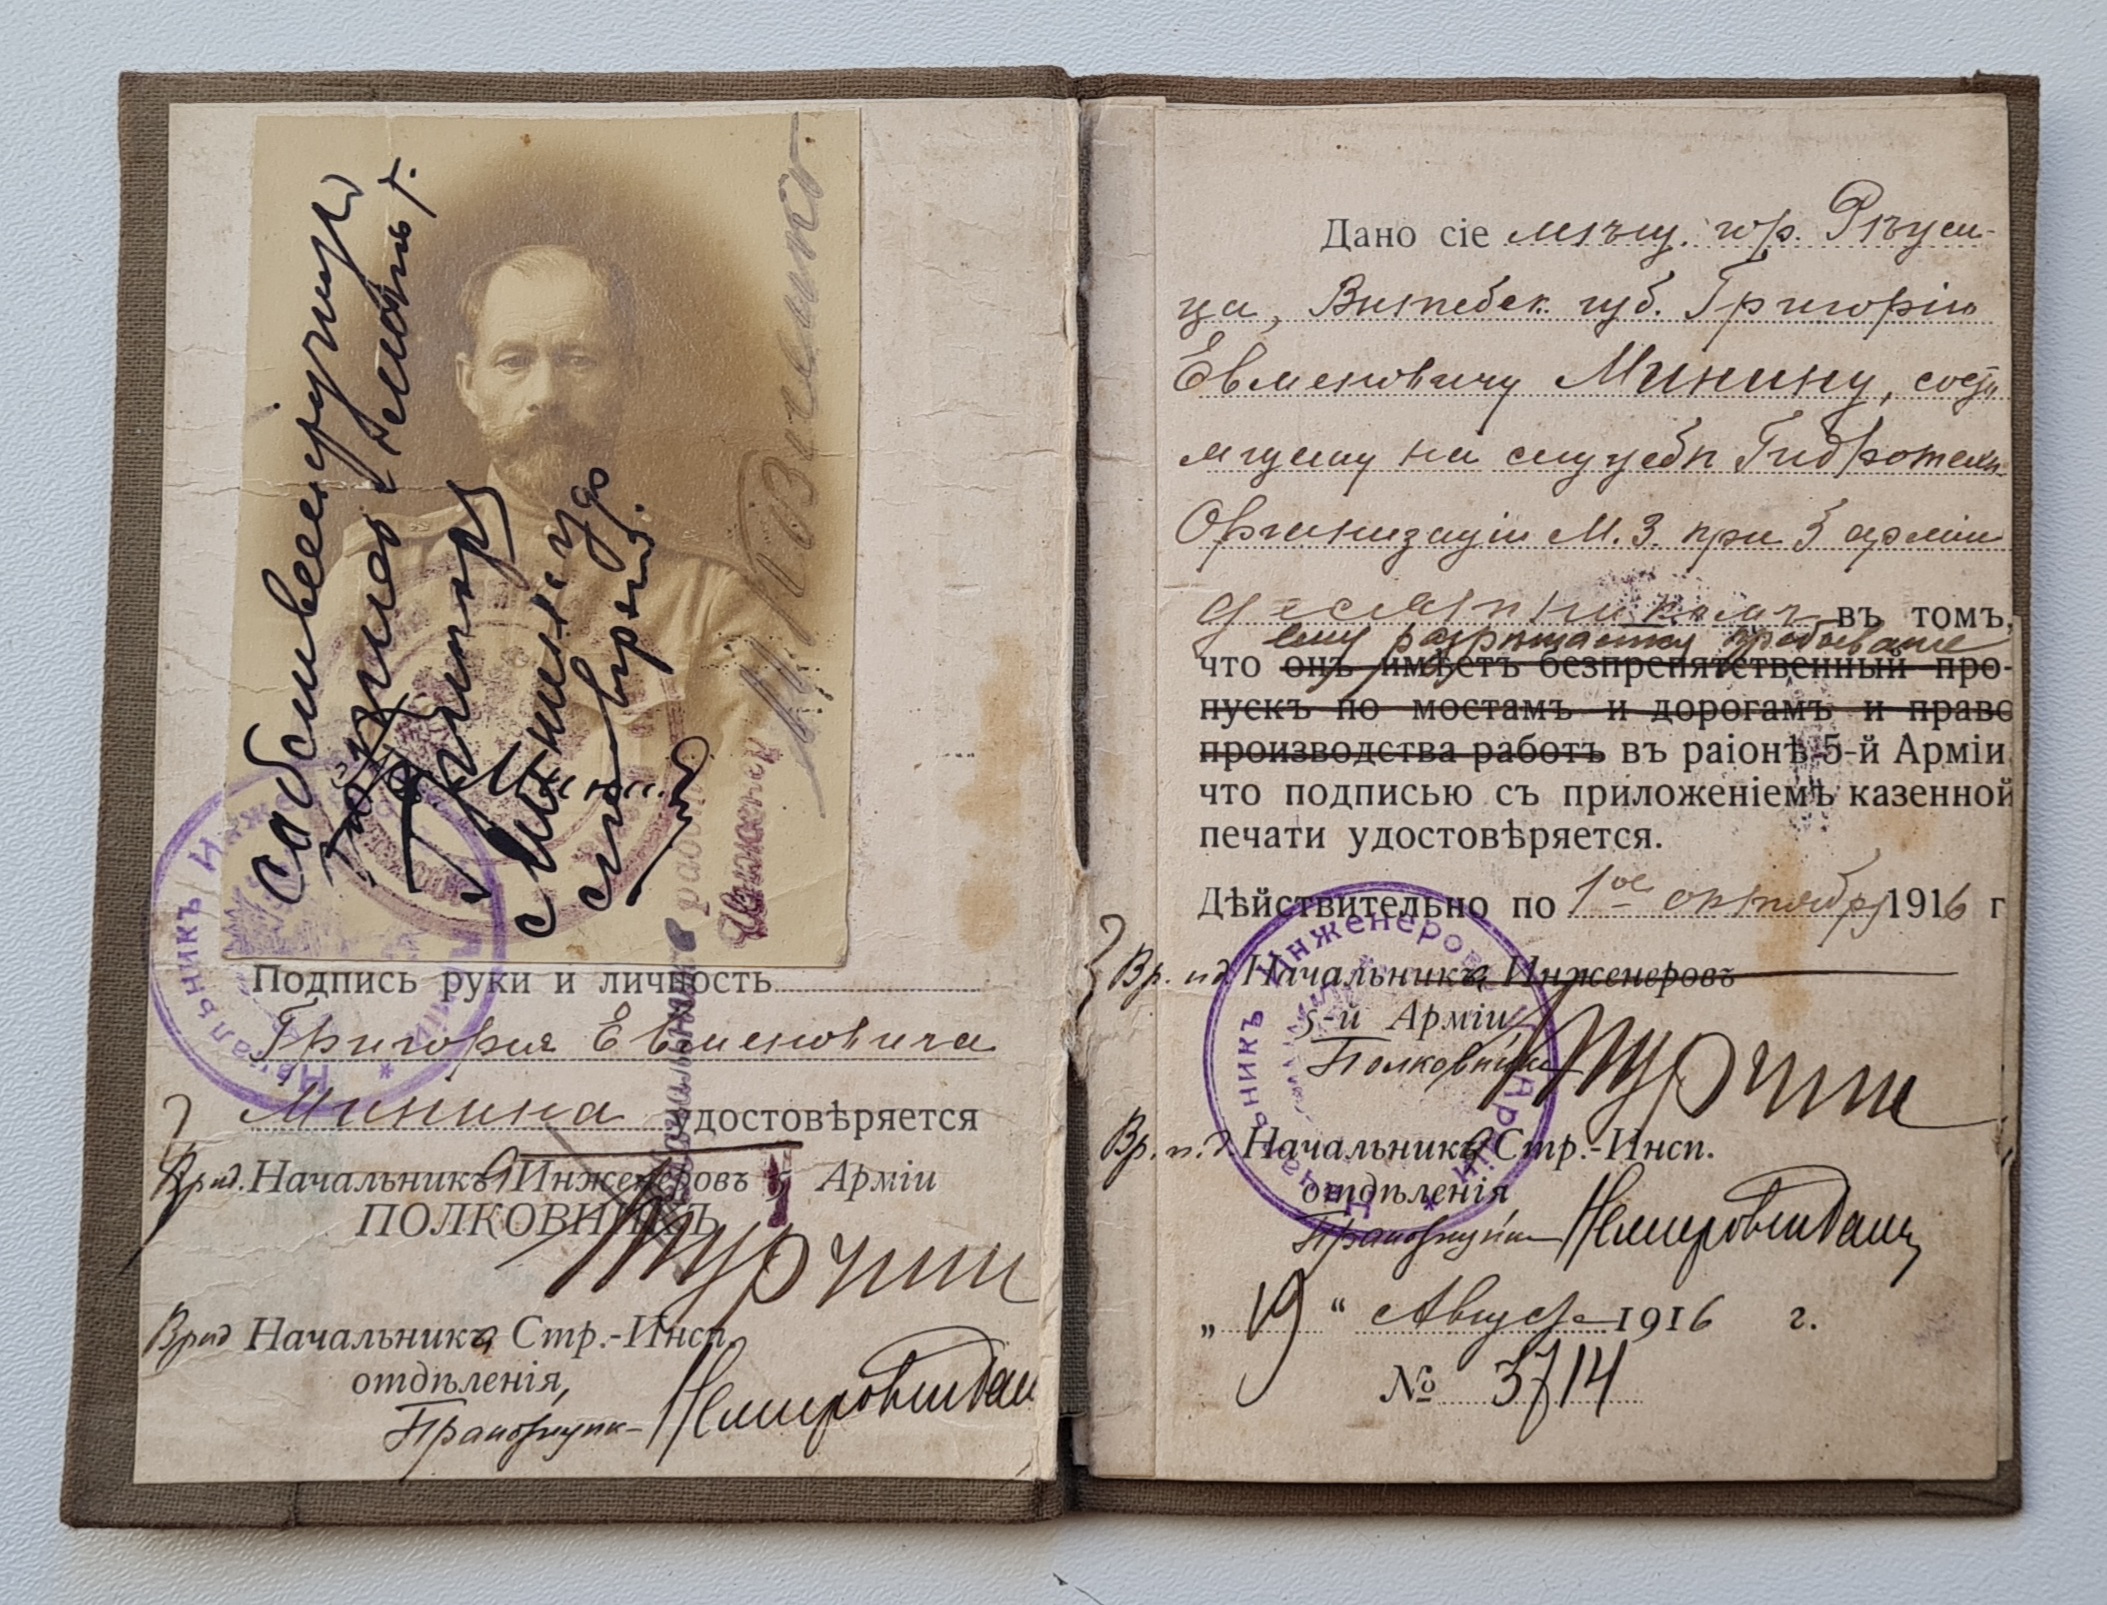 Собственноручную
Григор
Минина удо
стовѣряю.
Подпись руки и личность
Григорія Евменовича
Минина удостовѣряется
Врид. Начальника Инженеровъ 5 Арміи
ПОЛКОВНИКЪ
Врид Начальника Стр.-Инсп.
отдѣленія,
Прапорщикъ
Начальникъ Инженеровъ
Дано сіе мѣщ. гор. Рѣжи-
ца, Витебск. губ. Григорію
Евменовичу Минину, состо
ящему на службѣ Гидротехн.
Организаціи М.З. при 5 арміи
десятникомъ въ томъ,
ему разрѣшается пребываніе
что онъ имѣетъ безпрепятственный про-
пускъ по мостамъ и дорогамъ и право
производства работъ въ раіонѣ 5-й Арміи
что подписью съ приложеніемъ казенной
печати удостовѣряется.
Дѣйствительно по 1ое октября 1916 г
Вр. ид. Начальника Инженеровъ
5-й Арміи
Полковникъ
Вр. и. д. Начальника Стр.-Инсп.
отдѣленія
Прапорщикъ
„19“ Августа 1916 г.
№ 3714
Начальникъ Инженеровъ Арміи